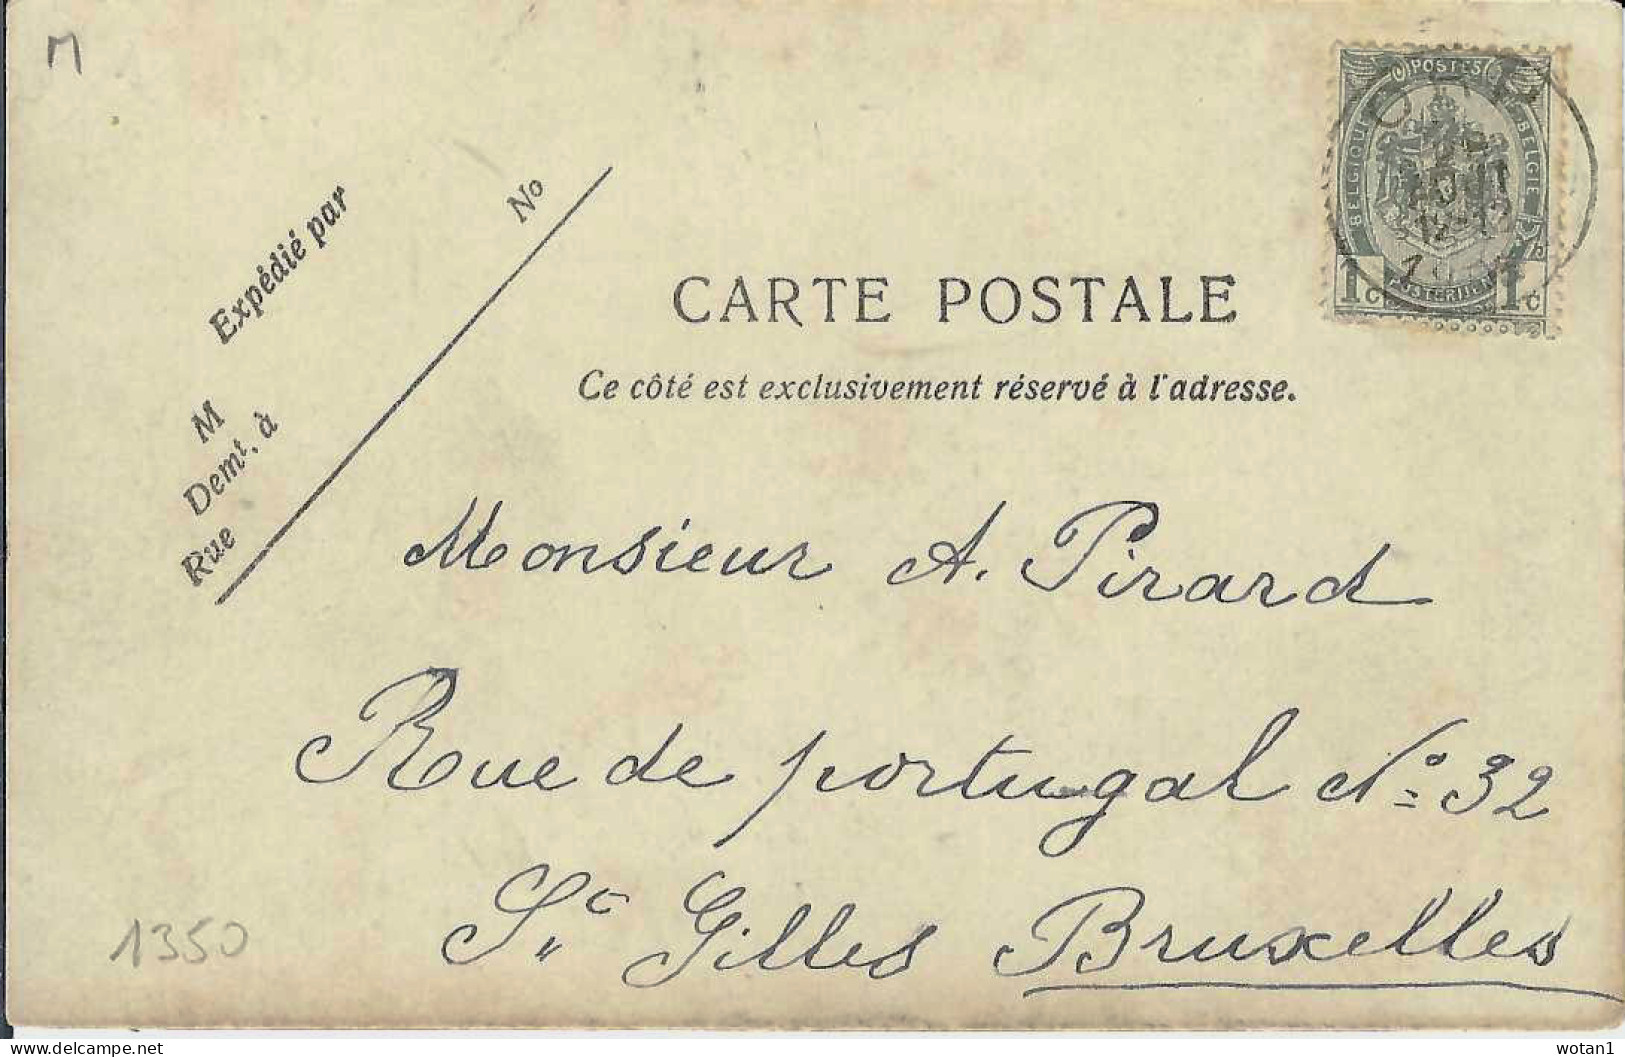 M
Expédié par
No
M
Demt. à
Rue
POSTES
BELGIQUE
BELGIE
POSTERIJEN
1c 1c
CARTE POSTALE
Ce côté est exclusivement réservé à l'adresse.
Monsieur A. Pirard
Rue de portugal No 32
St Gilles Bruxelles
1350
wotan1